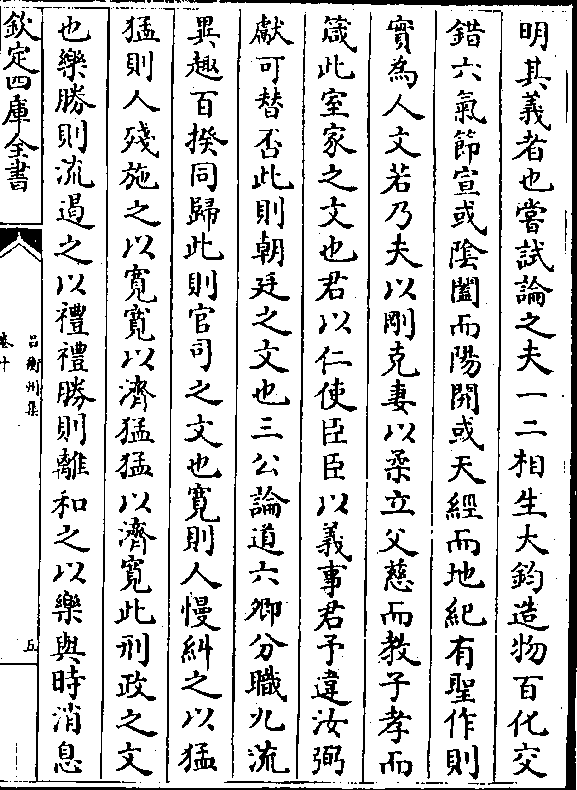 明其義者也嘗試論之夫一二相生大鈞造物百化交
錯六氣節宣或陰闔而陽開或天經而地紀有聖作則
實為人文若乃夫以剛克妻以柔立父慈而教子孝而
箴此室家之文也君以仁使臣臣以義事君予違汝弼
獻可替否此則朝廷之文也三公論道六卿分職九流
異趣百揆同歸此則官司之文也寛則人慢糾之以猛
猛則人殘施之以寛寛以濟猛猛以濟寛此刑政之文
也樂勝則流遏之以禮禮勝則離和之以樂與時消息
欽定四庫全書
呂衡州集
卷十
五